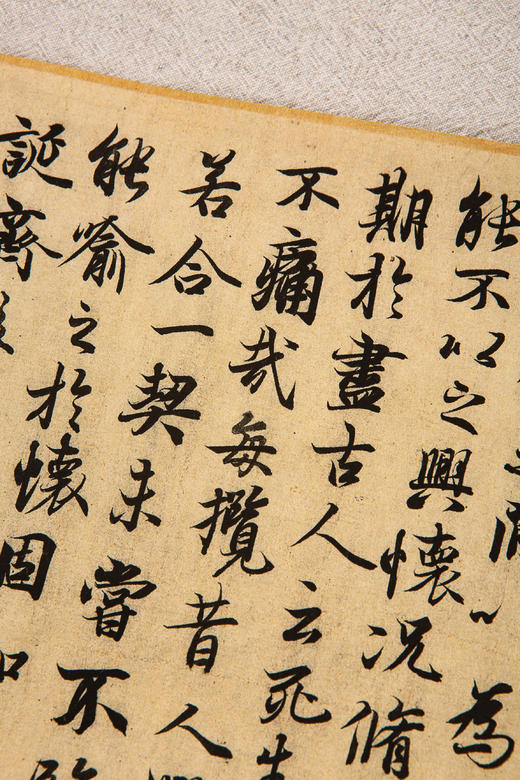 為
能不以之興懷況脩
期於盡古人云死生
不痛哉每攬昔人
若合一契未嘗不
能喻之於懷固
誕齊